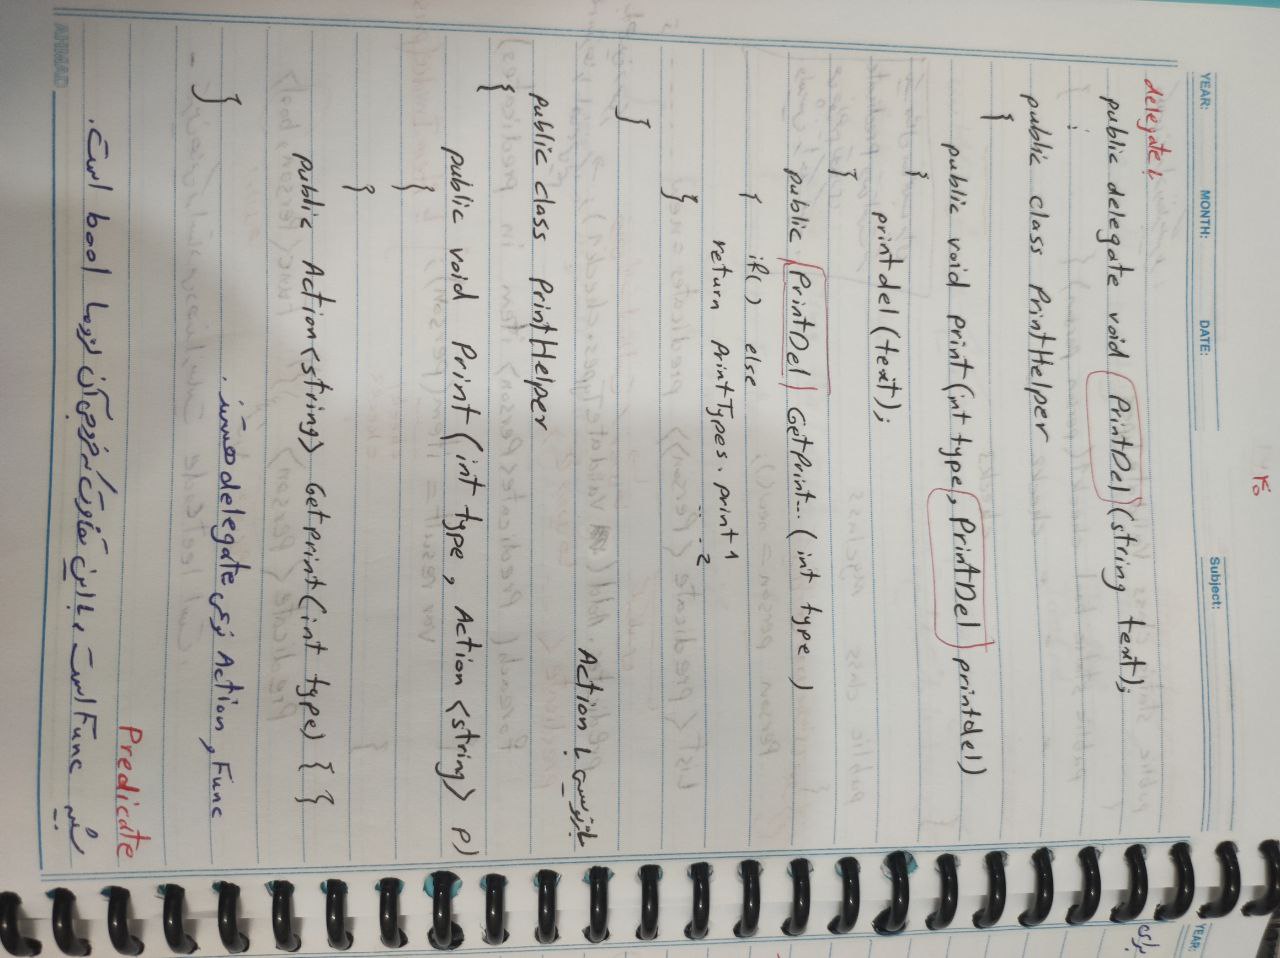 ۴۵
YEAR: MONTH: DATE: Subject:
YEAR:
برای
با delegate
public delegate void PrintDel (string text);
:
public class PrintHelper
{
public void Print(int type, PrintDel printdel)
{
printdel (text);
}
public PrintDel GetPrint... (int type )
{ if() else
return PrintTypes. print 1
.. .. . 2
}
}
بازنویسی با Action
public class PrintHelper
{
public void Print (int type , Action <string> p)
{
}
public Action <string> GetPrint(int type) { }
Func و Action نوعی delegate هستند.
}
Predicate
شبیه Func است، با این تفاوت که خروجی آن لزوما bool است.
AHMAD